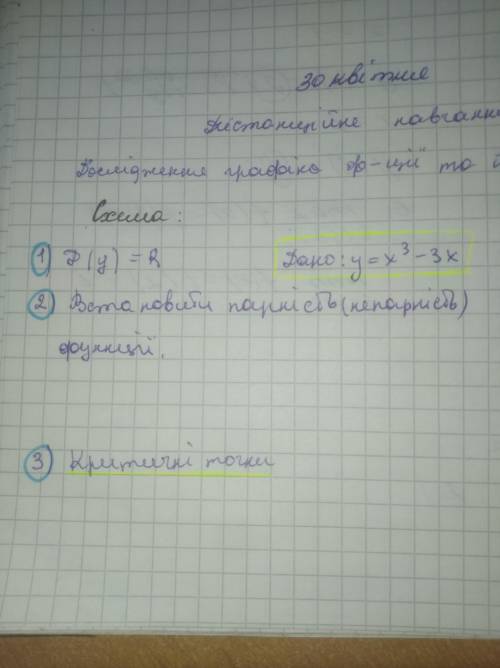 30 квітня
Дістанційне навчанн
Дослідження графіка ф-ції та ї
Схема:
1) D(y) = R Дано: y = x³ - 3x
2) Встановити парність (непарність)
функції.
3) Критичні точки